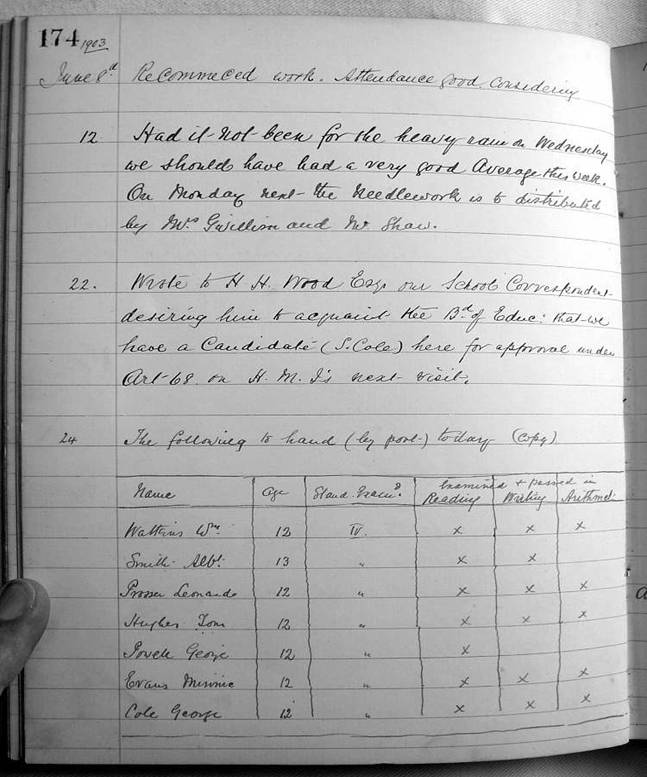 174 1903
June 8th Recommeced work. Attendance good considering
12 Had it not been for the heavy rain on Wednesday
we should have had a very good Average this week.
On Monday next the Needlework is to distributed
by Mrs Gwilliam and Mr Shaw.
22. Wrote to H H. Wood Esqr our School Correspondent
desiring him to acquaint the Bd of Educ: that we
have a Candidate (S. Cole) here for approval under
Art 68 on H. M. I's next visit.
24 The following to hand (by post) today (copy)
Name Age Stand. Examd. Examined & passed in
Reading Writing Arithmet:
Watkins Wm 12 IV. x x x
Smith Albt 13 " x x
Prosser Leonard 12 " x x x
Hughes Tom 12 " x x x
Powell George 12 " x
Evans Minnie 12 " x x x
Cole George 12 " x x x